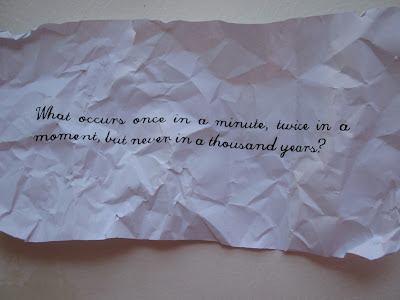 What occurs once in a minute, twice in a
moment, but never in a thousand years?